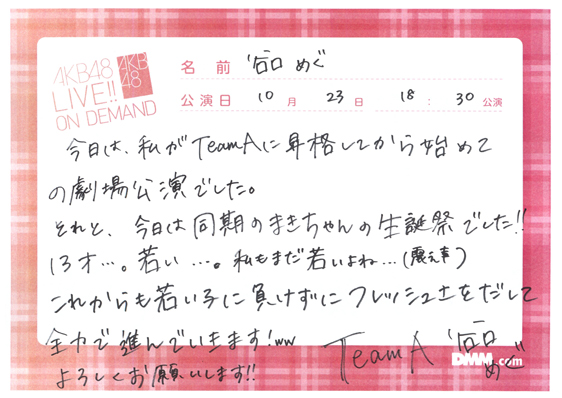 AKB48
LIVE!!
ON DEMAND
AKB
48
名前 谷口 めぐ
公演日 10月 23日 18:30公演
今日は、私がTeamAに昇格してから始めて
の劇場公演でした。
それと、今日は同期のまきちゃんの生誕祭でした!!
13才…。若い…。私もまだ若いよね…(震え声)
これからも若い子に負けずにフレッシュさをだして
全力で進んでいきます!ww
よろしくお願いします!!
TeamA 谷口
めぐ
DMM.com